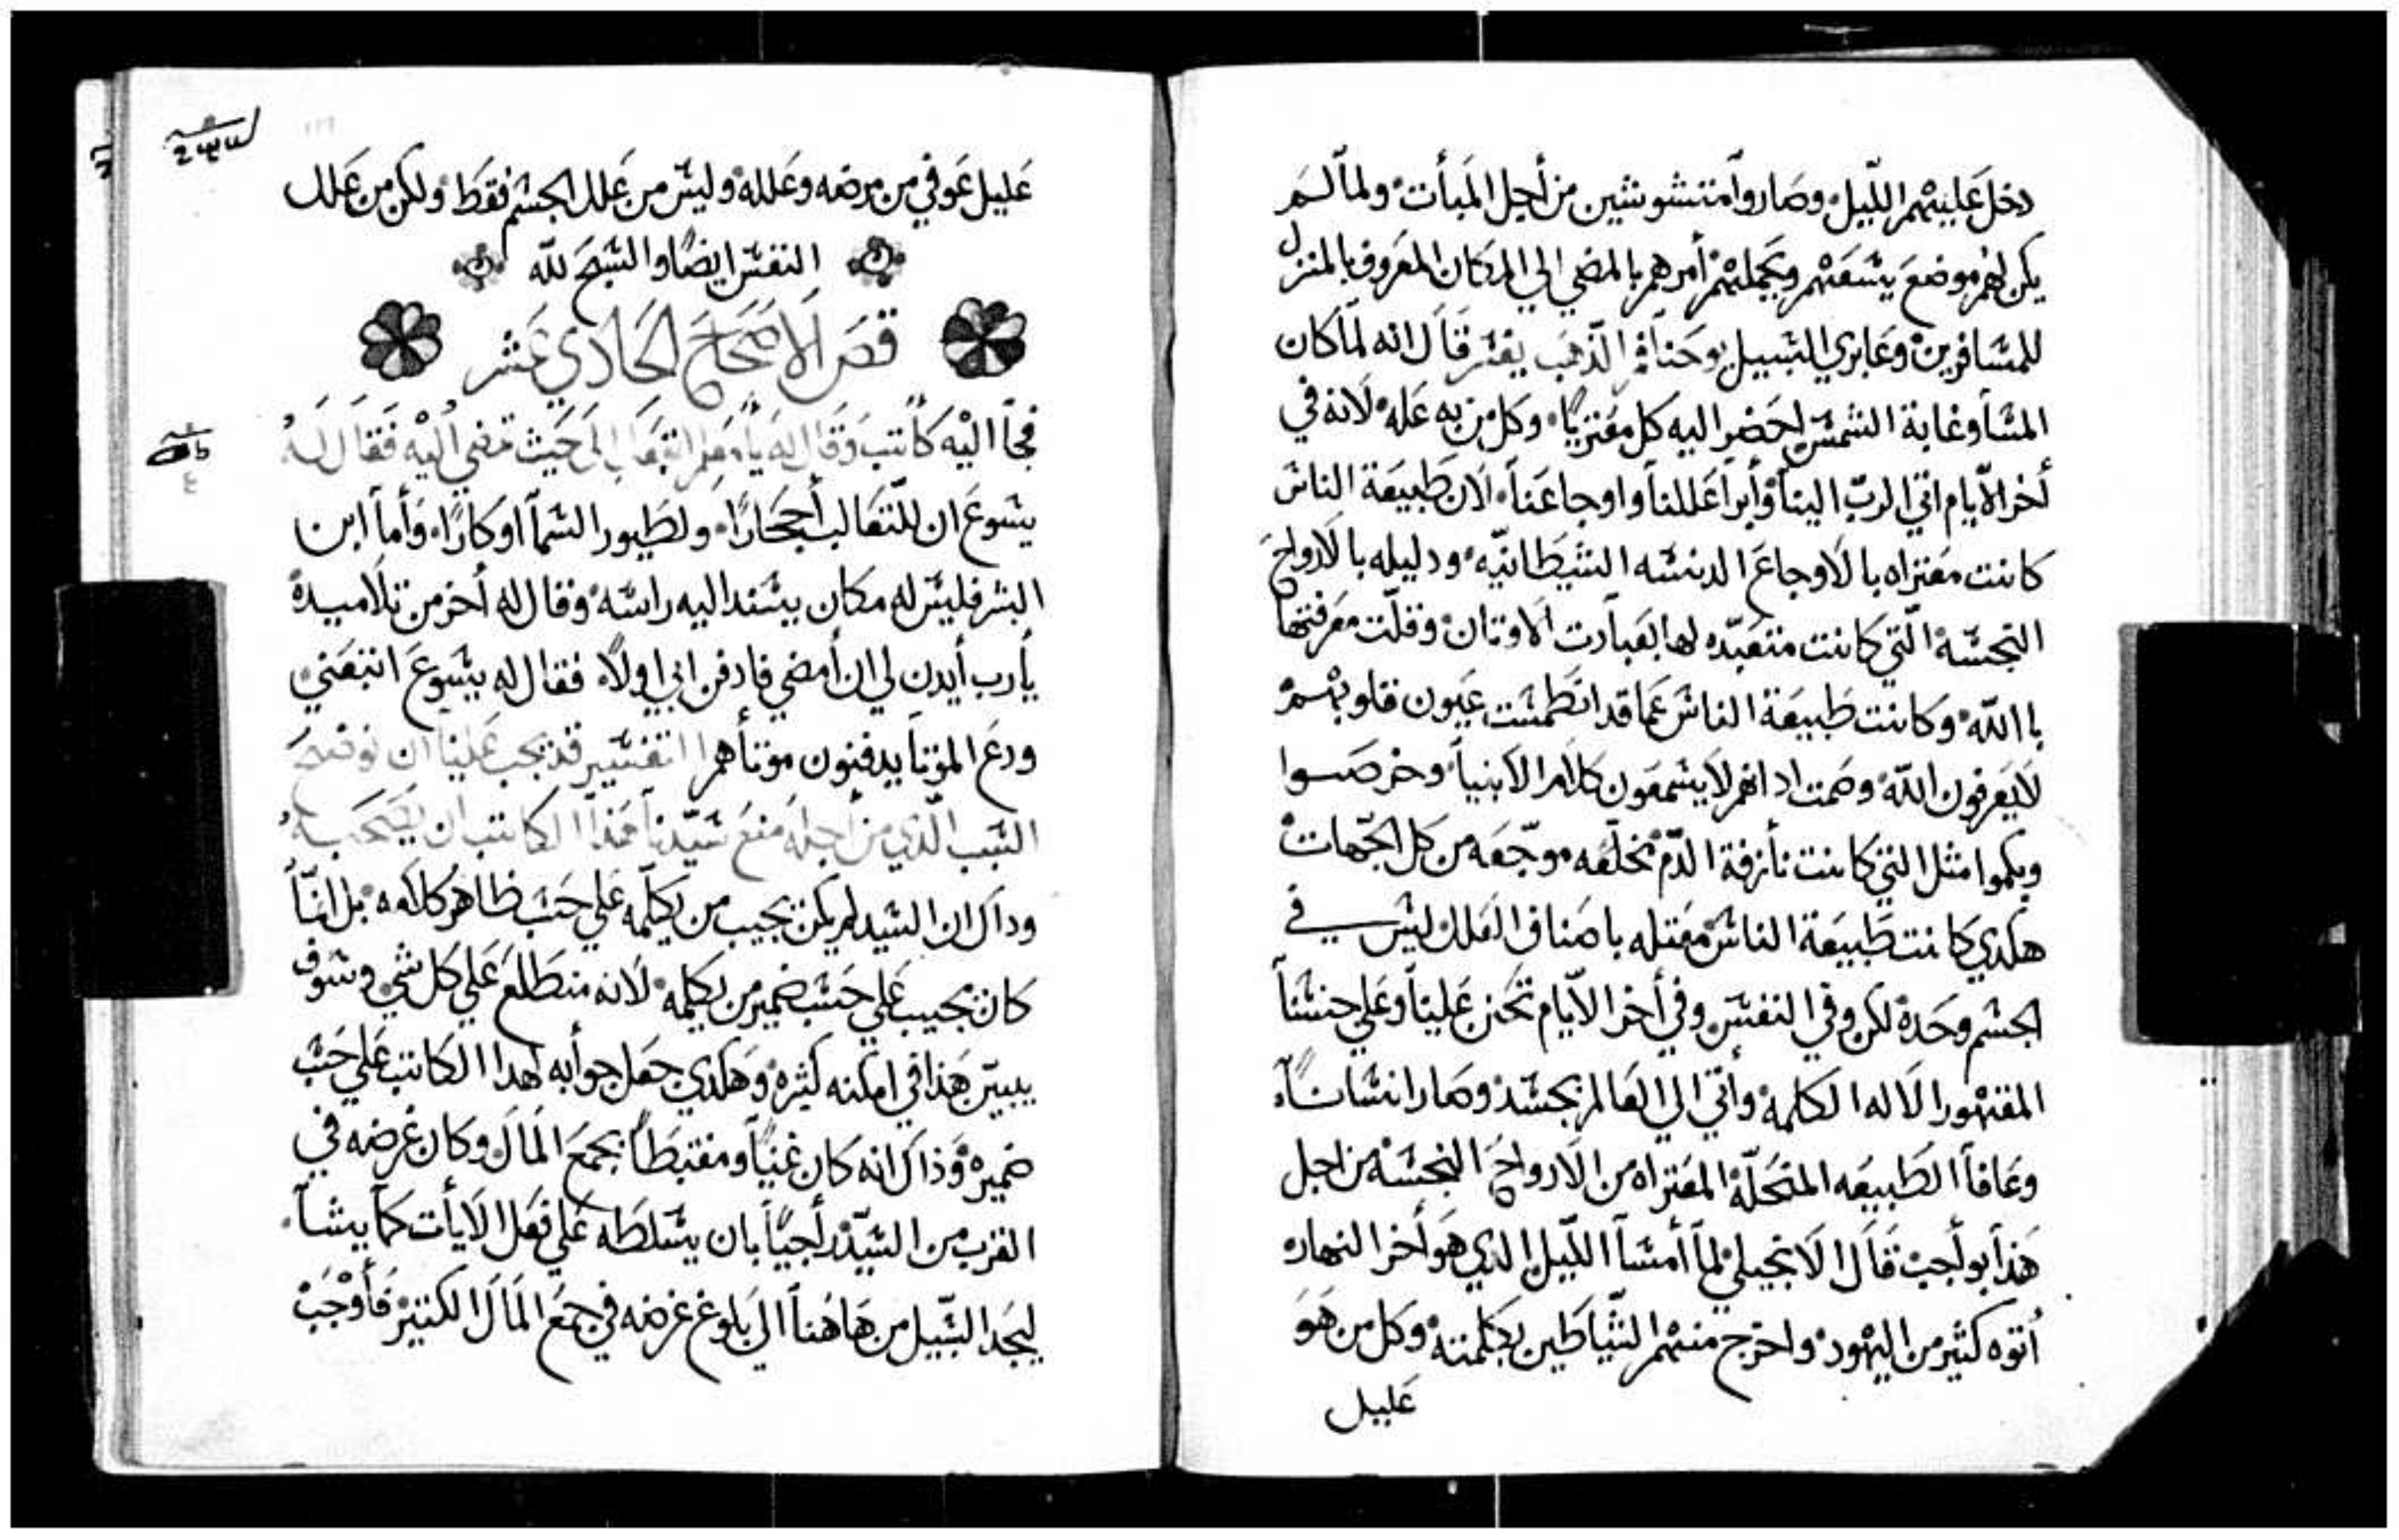 دخل عليهم الليل وصاروا متشوشين من أجل المبأت ولما لم
يكن لهم موضع يسعهم ويحملهم أمرهم بالمضي الي المكان المعروف بالمنزل
للمسافرين وعابري السبيل يوحنا فم الذهب يفسر قال انه لما كان
المسا وغابة الشمس احضر اليه كل معتريا وكل من به عله لانه في
أخر الأيام اتي الرب الينا وأبرا عللنا واوجاعنا لان طبيعة الناس
كانت معتراه بالاوجاع الدنسه الشيطانيه ودليله بالارواح
النجسه التي كانت متعبده لها بعبادت الاوتان وقلت معرفتها
باالله وكانت طبيعة الناس عما قد انطمست عيون قلوبهم
لا يعرفون الله وصمت ادانهم لا يسمعون كلام الانبيا وخرصوا
وبكموا مثل التي كانت نازفة الدم مخلعه موجعه من كل الجهات
هكدي كانت طبيعة الناس معتله باصناف العلل ليس في
الجسم وحده لكن وفي النفس وفي أخر الأيام تحنن علينا وعلي جنسنا
المقهور الاله الكلمه وأتي الي العالم بجسد وصار انسانا
وعافا الطبيعه المنحله المعتراه من الارواح النجسه من اجل
هذا بواجب قال الانجيلي لما أمسا الليل الدي هو أخر النهار
أتوه كثير من اليهود واخرج منهم الشياطين بكلمته وكل من هو
عليل
عليل عوفي من مرضه وعلله وليس من علل الجسم فقط ولكن من علل
النفس ايضا والسبح لله
قص الاصحاح الحادي عشر
فجأ اليه كاتب وقال له يا معلم اتبعك الي حيث تمضي اليه فقال له
يسوع ان للتعالب أجحارا ولطيور السما اوكارا وأما ابن
البشر فليس له مكان يسند اليه راسه وقال له أخر من تلاميده
يأرب أيدن لي ان أمضي فادفن ابي اولا فقال له يسوع اتبعني
ودع الموتا يدفنون موتاهم التفسير قد يجب علينا ان نوضح
السبب الذي من أجله منع سيدنا هذا الكاتب ان يصحبه
وداك ان السيد لم يكن يجيب من يكلمه علي حسب ظاهر كلامه بل انما
كان يجيب علي حسب ضمير من يكلمه لانه متطلع علي كل شي وسوف
يبين هذا في امكنه كثيره وهكدي جعل جوابه لهدا الكاتب علي حسب
ضميره وذاك انه كان غنيا ومغتبطا بجمع المال وكان غرضه في
القرب من السيد راجيا بان يسلطه علي فعل الايات كما يشا
ليجد السبيل من هاهنا الي بلوغ غرضه في جمع المال الكتير فأوجب